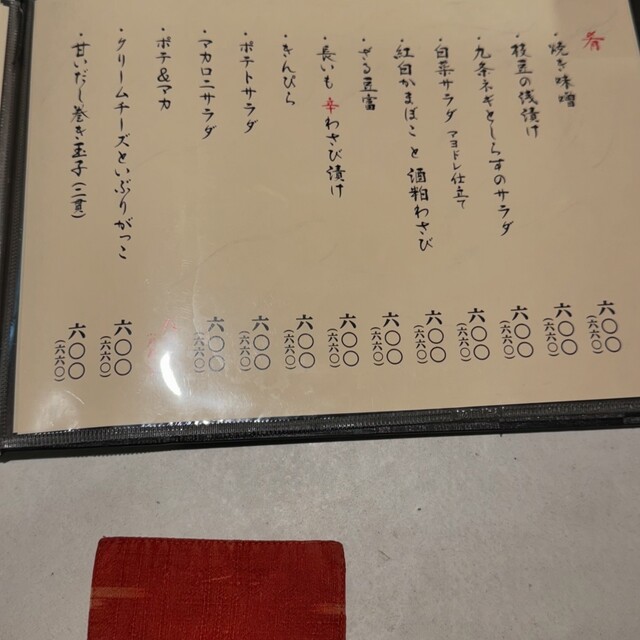 肴
・焼き味噌 六〇〇(六六〇)
・枝豆の浅漬け 六〇〇(六六〇)
・九条ネギとしらすのサラダ 六〇〇(六六〇)
・白菜サラダ マヨドレ仕立て 六〇〇(六六〇)
・紅白かまぼこと酒粕わさび 六〇〇(六六〇)
・ざる豆富 六〇〇(六六〇)
・長いも辛わさび漬け 六〇〇(六六〇)
・きんぴら 六〇〇(六六〇)
・ポテトサラダ 六〇〇(六六〇)
・マカロニサラダ 六〇〇(六六〇)
・ポテ&マカ
・クリームチーズといぶりがっこ 六〇〇(六六〇)
・甘いだし巻き玉子(二貫) 六〇〇(六六〇)